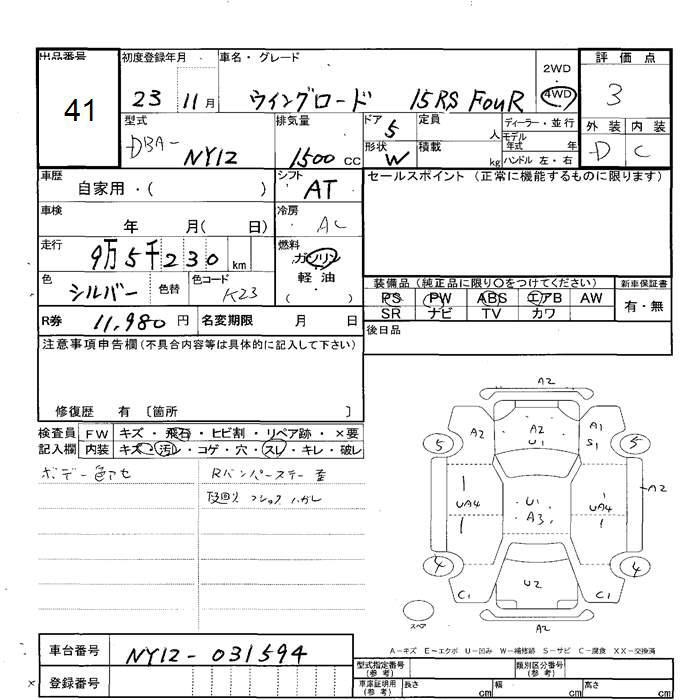 出品番号 初度登録年月 車名・グレード 2WD 評価点
41 23 11月 ウイングロード 15RS FouR 4WD 3
型式 排気量 ドア 5 定員 人 ディーラー・並行 外装 内装
DBA- NY12 1500 CC 形状 W 積載 kg モデル年式 年 D C
ハンドル 左・右
車歴 自家用・( ) シフト AT セールスポイント (正常に機能するものに限ります)
車検 年 月( 日) 冷房 AC
走行 9万5千230 km 燃料 ガソリン
軽油
( )
色 シルバー 色替 色コード K23
装備品 (純正品に限り○をつけてください) 新車保証書
PS PW ABS エアB AW 有・無
SR ナビ TV カワ
R券 11,980 円 名変期限 月 日 後日品
注意事項申告欄 (不具合内容等は具体的に記入して下さい)
修復歴 有 〔箇所 〕
検査員 FW キズ・飛石・ヒビ割・リペア跡・×要
記入欄 内装 キズ・汚レ・コゲ・穴・スレ・キレ・破レ
ボデー色アセ Rバンパーステー歪
A2
A2 A2 A1
U1 S1
5 5
A2
UA4 U1 UA4
A3
4 4
U2
C1 C1
A2
スペア
A-キズ E-エクボ U-凹み W-補修跡 S-サビ C-腐食 XX-交換済
車台番号 NY12-031594
登録番号
型式指定番号 (参考) 類別区分番号 (参考)
車庫証明用 (参考) 長さ cm 幅 cm 高さ cm